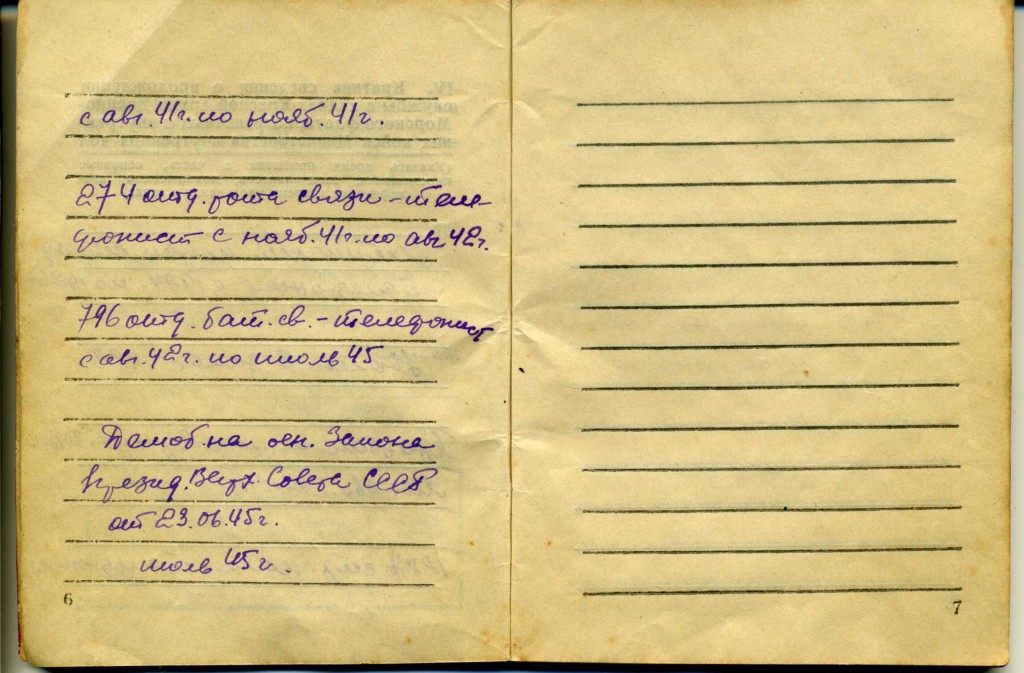 с авг. 41г. по нояб. 41г.
274 отд. рота связи - теле-
фонист с нояб. 41г. по авг 42г.
796 отд. бат. св. - телефонист
с авг. 42г. по июль 45
Демоб. на осн. Закона
Презид. Верх. Совета СССР
от 23.06.45г.
июль 45г.
6
7